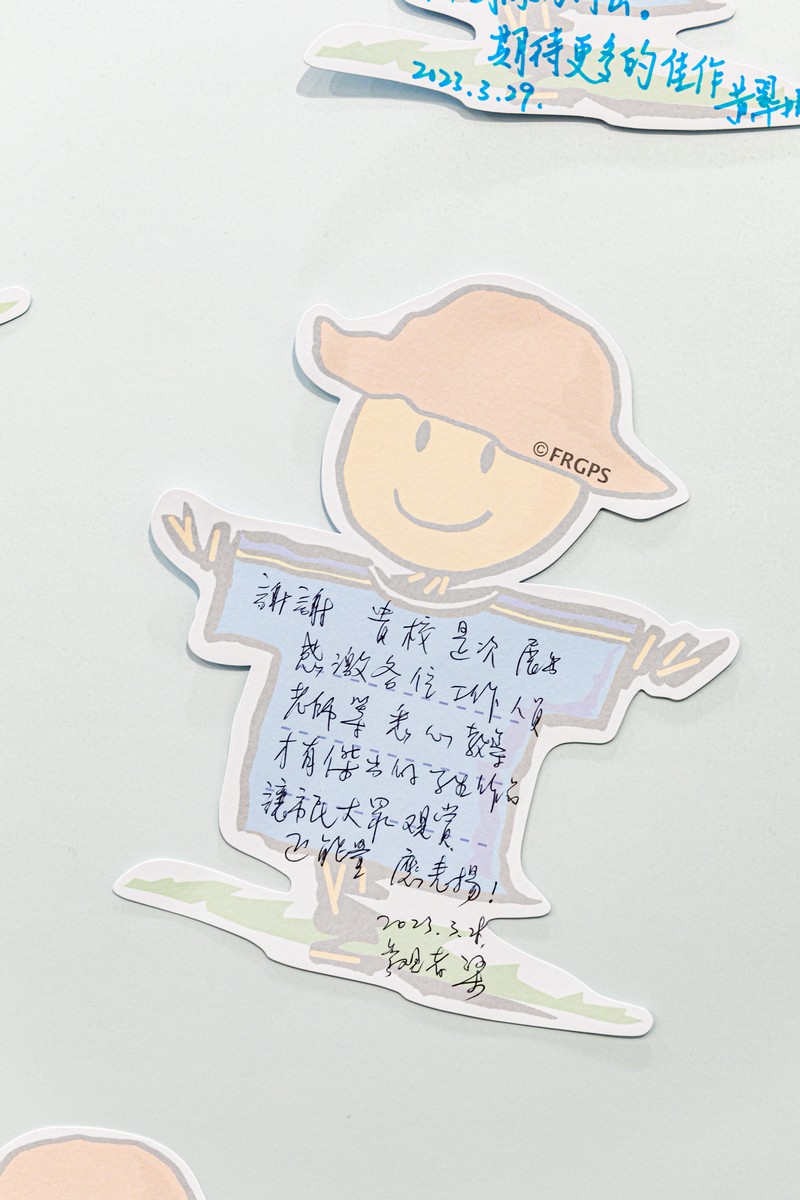 期待更多的佳作
2023.3.29.
©FRGPS
謝謝 貴校是次展出
感激各位工作人員
老師等悉心教導
才有傑出的學生作品
讓市民大眾观賞
正能量 應表揚!
2023.3.
參观者 梁